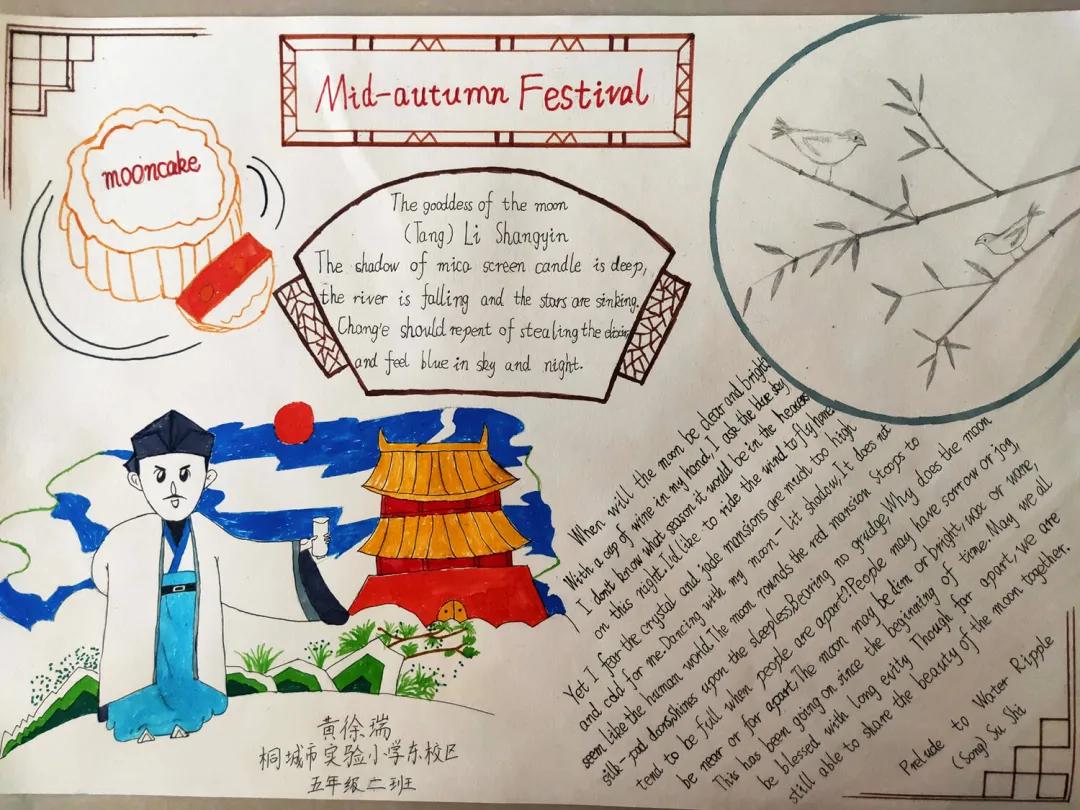 Mid-autumn Festival
mooncake
The goddess of the moon
(Tang) Li Shangyin
The shadow of mica screen candle is deep,
the river is falling and the stars are sinking.
Chang'e should repent of stealing the elixir
and feel blue in sky and night.
When will the moon be clear and bright?
With a cup of wine in my hand, I ask the blue sky
I don't know what season it would be in the heavens
on this night. I'd like to ride the wind to fly home
Yet I fear the crystal and jade mansions are much too high
and cold for me. Dancing with my moon-lit shadow, It does not
seem like the human world. The moon rounds the red mansion Stoops to
silk-pad doors, Shines upon the sleepless, Bearing no grudge, Why does the moon
tend to be full when people are apart? People may have sorrow or joy,
be near or far apart, The moon may be dim or bright, wax or wane,
This has been going on since the beginning of time. May we all
be blessed with long evity Though far apart, we are
still able to share the beauty of the moon together.
Prelude to Water Ripple
(Song) Su Shi
黄徐瑞
桐城市实验小学东校区
五年级二班